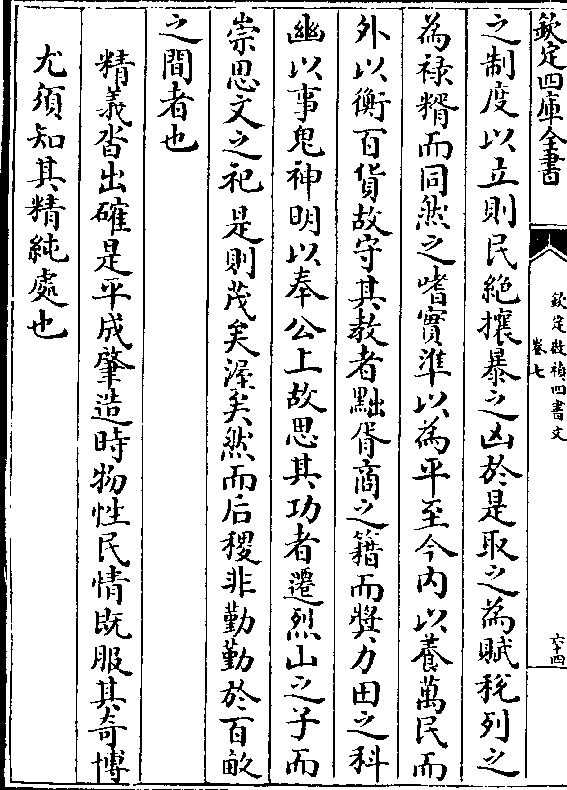 欽定四庫全書
欽定啟禎四書文
卷七
六十四
之制度以立則民絶攘暴之凶於是取之為賦稅列之
為禄糈而同然之嗜實準以為平至今内以養萬民而
外以衡百貨故守其教者黜胥商之籍而奨力田之科
幽以事鬼神明以奉公上故思其功者遷烈山之子而
崇思文之祀是則茂矣渥矣然而后稷非勤勤於百畝
之間者也
精義沓出確是平成肇造時物性民情既服其奇博
尤須知其精純處也